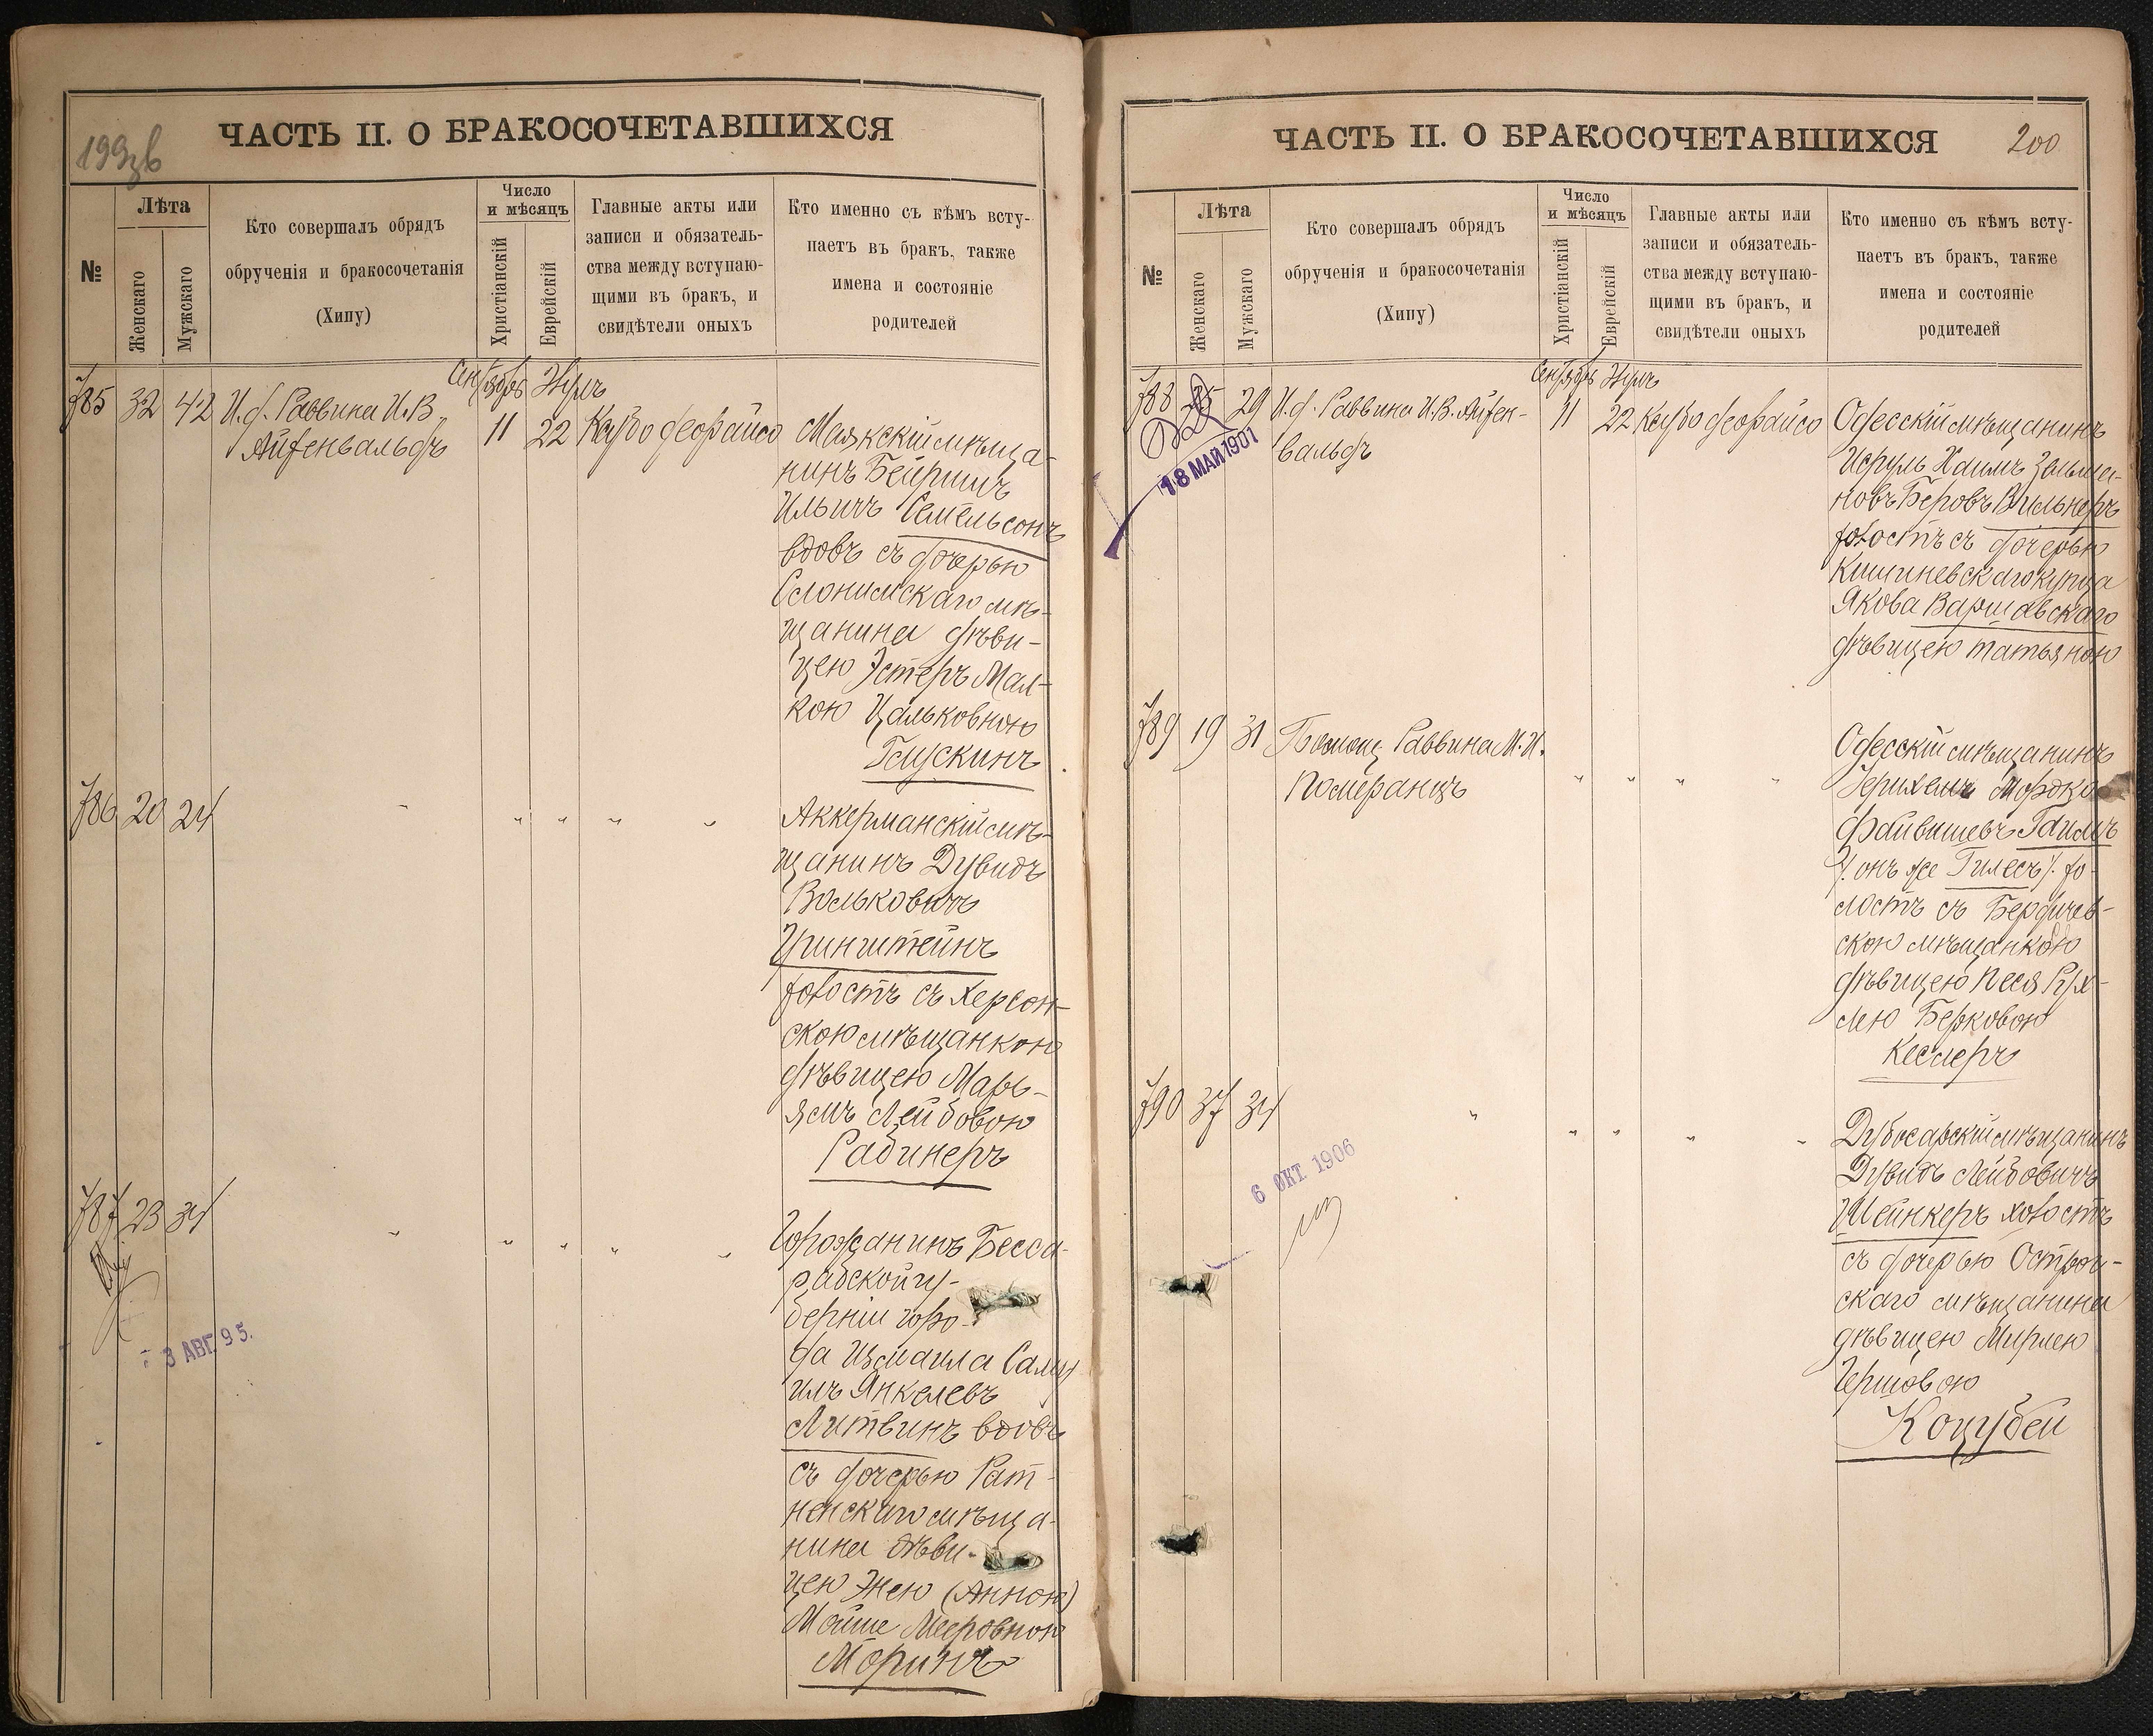 199 об
ЧАСТЬ II. О БРАКОСОЧЕТАВШИХСЯ
№
Лѣта
Женскаго
Мужскаго
Кто совершалъ обрядъ
обрученія и бракосочетанія
(Хипу)
Число
и мѣсяцъ
Христіанскій
Еврейскій
Главные акты или
записи и обязатель-
ства между вступаю-
щими въ бракъ, и
свидѣтели оныхъ
Кто именно съ кѣмъ всту-
паетъ въ бракъ, также
имена и состояніе
родителей
Сентябрь Элулъ
785 32 42 И.д. Раввина И.В.
Айзенвальдъ
11 22 Каубо деорайсо
Маякскій мѣща-
нинъ Бейришъ
Ильичъ Семельсонъ
вдовъ съ дочерью
Слонимскаго мѣ-
щанина дѣви-
цею Эстеръ Мал-
кою Цальковною
Глускинъ
786 20 24 " " " " "
Аккерманскій мѣ-
щанинъ Дувидъ
Вольковичъ
Гринштейнъ
холостъ съ Херсон-
скою мѣщанкою
дѣвицею Марь-
ямъ Лейбовою
Рабинеръ
787 23 34 " " " " "
3 АВГ. 95.
Горожанинъ Бесса-
рабской гу-
берніи горо-
да Измаила Саму
илъ Янкелевъ
Литвинъ вдовъ
съ дочерью Рат-
ненскаго мѣща-
нина дѣви-
цею Энею (Анною)
Мойше Мееровною
Моринъ
ЧАСТЬ II. О БРАКОСОЧЕТАВШИХСЯ
200
№
Лѣта
Женскаго
Мужскаго
Кто совершалъ обрядъ
обрученія и бракосочетанія
(Хипу)
Число
и мѣсяцъ
Христіанскій
Еврейскій
Главные акты или
записи и обязатель-
ства между вступаю-
щими въ бракъ, и
свидѣтели оныхъ
Кто именно съ кѣмъ всту-
паетъ въ бракъ, также
имена и состояніе
родителей
Сентябрь Элулъ
788 25 29 И.д. Раввина И.В. Айзен-
вальдъ
11 22 Каубо деорайсо
18 МАЙ 1901
Одесскій мѣщанинъ
Исруль Хаимъ Зельма-
новъ Беровъ Вильнеръ
холостъ съ дочерью
Кишиневскаго купца
Якова Варшавскаго
дѣвицею Татьяною
789 19 31 Помощ. Раввина М.И.
Померанцъ
" " " "
Одесскій мѣщанинъ
Мордко
Файвишевъ Гаилъ
/. онъ же Гилесъ ./ хо-
лостъ съ Бердичев-
скою мѣщанкою
дѣвицею Песя Рух-
лею Берковою
Кеслеръ
790 37 34 " " " " "
6 ОКТ 1906
Дубосарскій мѣщанинъ
Дувидъ Лейбовичъ
Шейнкеръ холостъ
съ дочерью Острог-
скаго мѣщанина
дѣвицею Мирлею
Гершовою
Коцубей